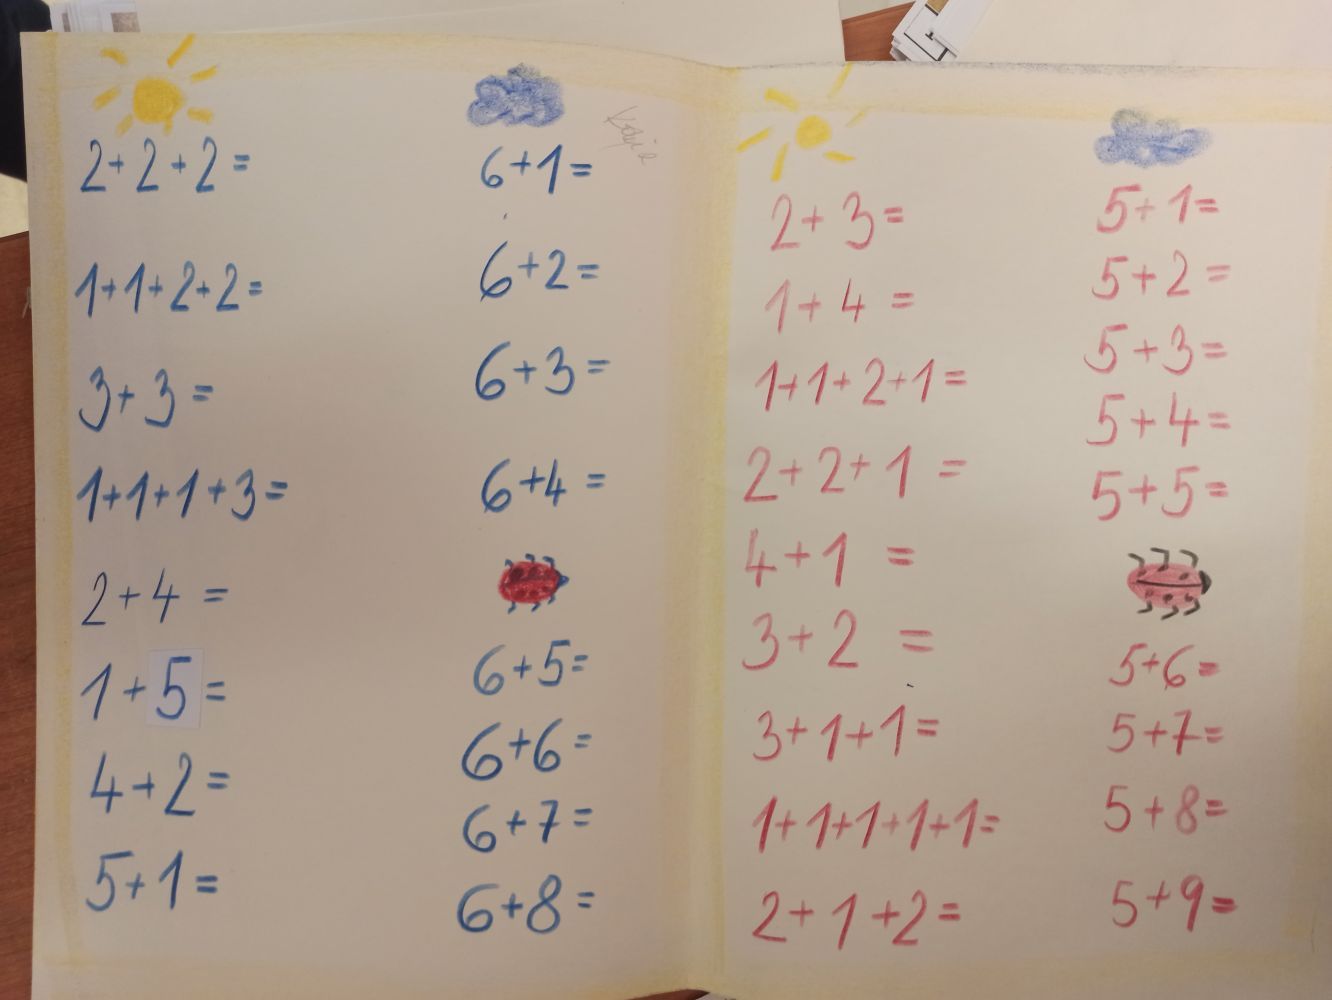 2+2+2=
1+1+2+2=
3+3=
1+1+1+3=
2+4=
1+5=
4+2=
5+1=
6+1=
6+2=
6+3=
6+4=
6+5=
6+6=
6+7=
6+8=
2+3=
1+4=
1+1+2+1=
2+2+1=
4+1=
3+2=
3+1+1=
1+1+1+1+1=
2+1+2=
5+1=
5+2=
5+3=
5+4=
5+5=
5+6=
5+7=
5+8=
5+9=